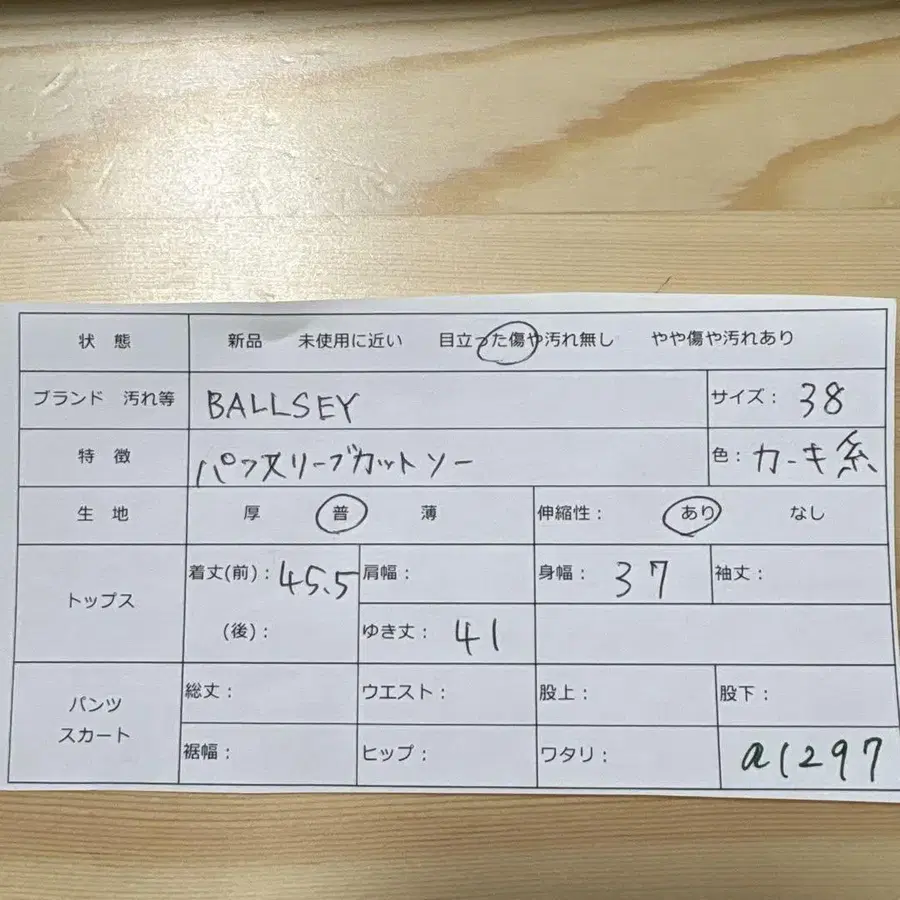 状 態 新品 未使用に近い 目立った傷や汚れ無し やや傷や汚れあり
ブランド 汚れ等 BALLSEY サイズ： 38
特 徴 パフスリーブカットソー 色： カーキ系
生 地 厚 普 薄 伸縮性： あり なし
トップス 着丈(前)： 45.5 肩幅： 身幅： 37 袖丈：
(後)： ゆき丈： 41
パンツ スカート 総丈： ウエスト： 股上： 股下：
裾幅： ヒップ： ワタリ： a1297